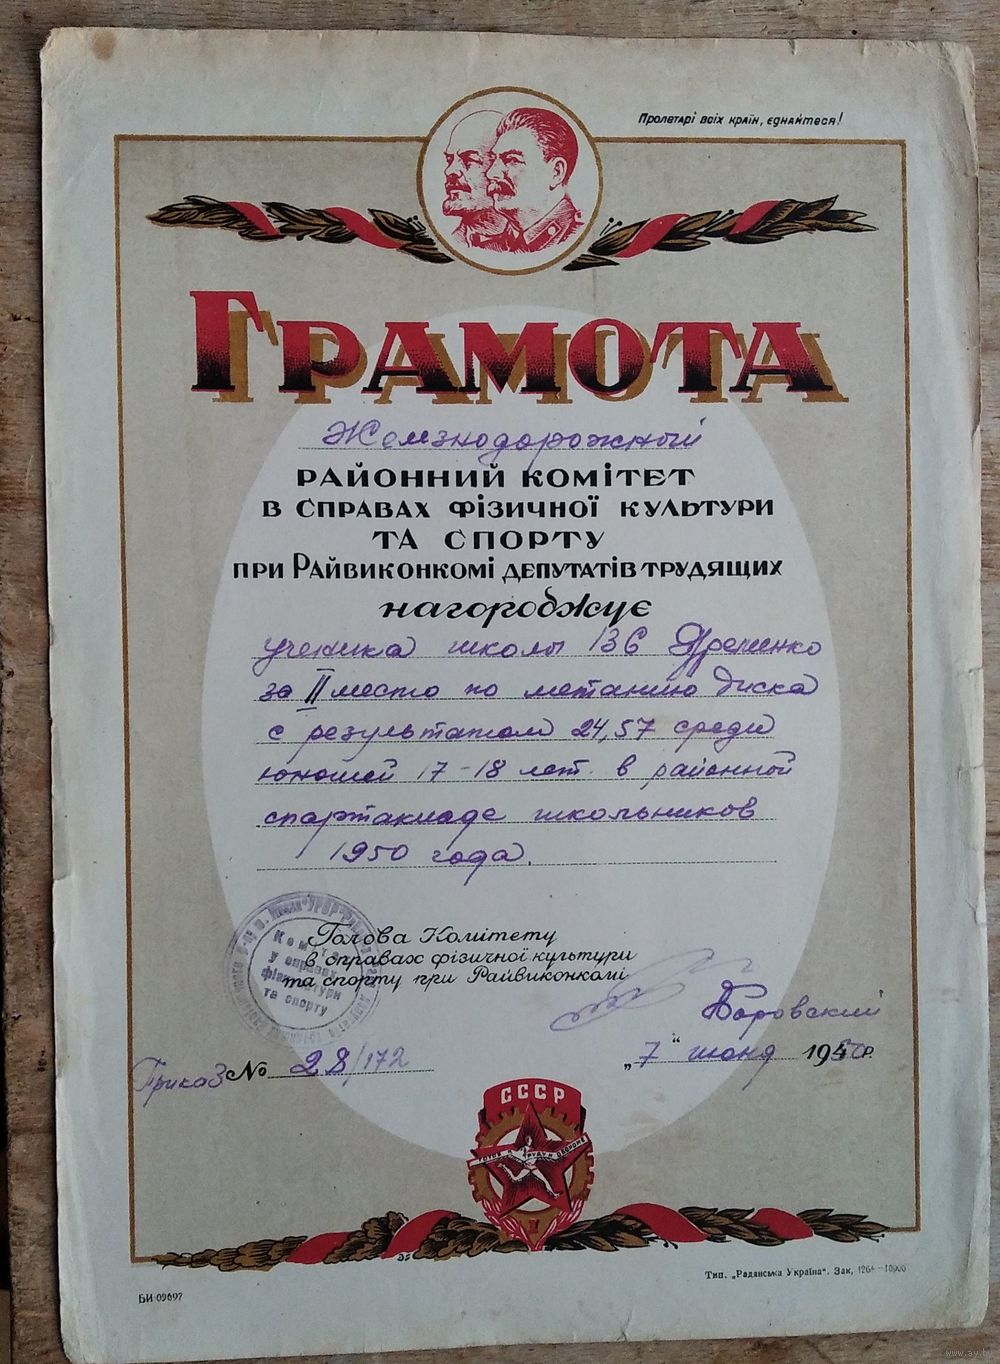 Пролетарі всіх країн, єднайтеся!
ГРАМОТА
Железнодорожный
РАЙОННИЙ КОМІТЕТ
В СПРАВАХ ФІЗИЧНОЇ КУЛЬТУРИ
ТА СПОРТУ
ПРИ РАЙВИКОНКОМІ ДЕПУТАТІВ ТРУДЯЩИХ
нагороджує
ученика школы 136 Яременко
за II место по метанию диска
с результатом 24,57 среди
юношей 17-18 лет в районной
спартакиаде школьников
1950 года.
Комітет
у справах
фізкультури
та спорту
Голова Комітету
в справах фізичної культури
та спорту при Райвиконкомі
Боровский
„7" июня 1950 р.
Приказ № 28/172
СССР
ГОТОВ К ТРУДУ И ОБОРОНЕ
I
Тип. „Радянська Україна". Зак. 1264—10000
БИ 09697
www.ay.by